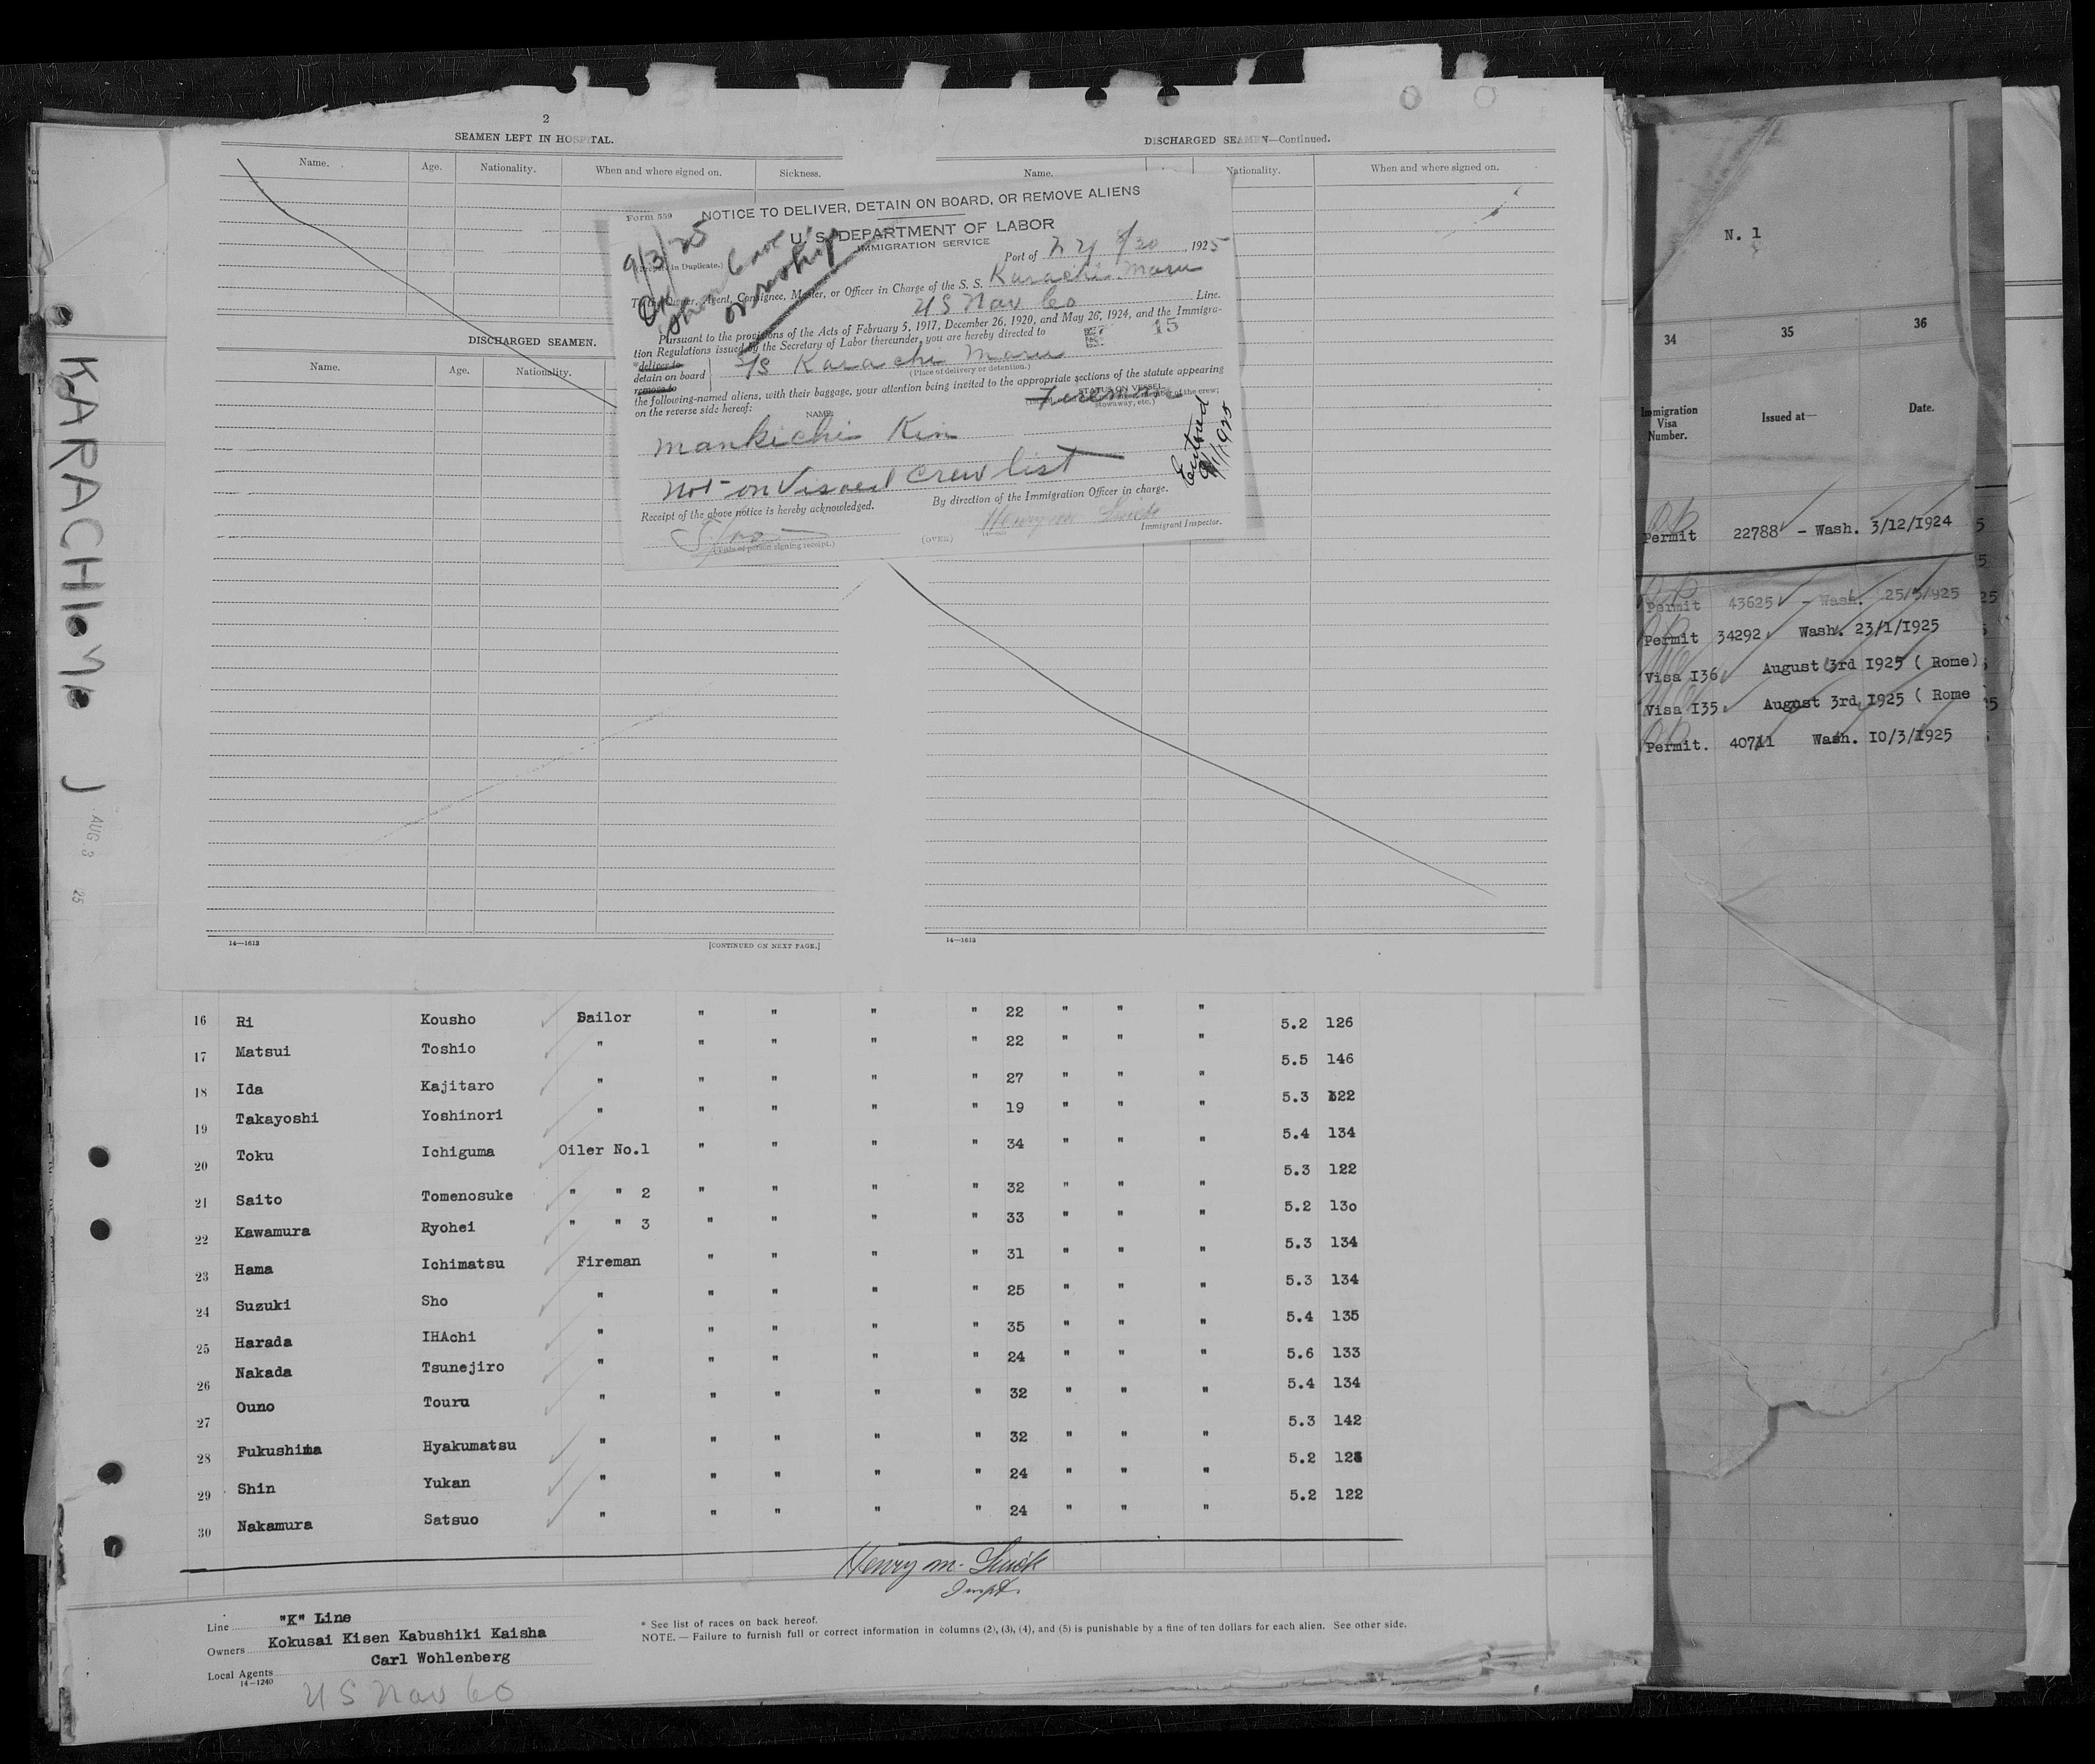 2
SEAMEN LEFT IN HOSPITAL.
Name. Age. Nationality. When and where signed on. Sickness.
DISCHARGED SEAMEN.
Name. Age. Nationality.
14—1613 [CONTINUED ON NEXT PAGE.]
DISCHARGED SEAMEN—Continued.
Name. Nationality. When and where signed on.
14—1613
Form 559 NOTICE TO DELIVER, DETAIN ON BOARD, OR REMOVE ALIENS
U. S. DEPARTMENT OF LABOR
IMMIGRATION SERVICE
9/3/25
in Duplicate.)
Port of N Y 8/30, 1925
To the Owner, Agent, Consignee, Master, or Officer in Charge of the S. S. Karachi Maru
U S Nav Co Line.
Pursuant to the provisions of the Acts of February 5, 1917, December 26, 1920, and May 26, 1924, and the Immigra-
tion Regulations issued by the Secretary of Labor thereunder, you are hereby directed to
15
*deliver to
detain on board S/S Karachi Maru
remove to
(Place of delivery or detention.)
the following-named aliens, with their baggage, your attention being invited to the appropriate sections of the statute appearing
on the reverse side hereof:
NAME. STATUS ON VESSEL
Fireman
of the crew;
stowaway, etc.)
Mankichi Kin
not on Visaed Crew list
Entered
Receipt of the above notice is hereby acknowledged. By direction of the Immigration Officer in charge.
Henry M
(Title of person signing receipt.) (OVER) Immigrant Inspector.
KARACHI M
J
AUG. 3 25
16 Ri Kousho Sailor " " " " 22 " " " 5.2 126
17 Matsui Toshio " " " " " 22 " " " 5.5 146
18 Ida Kajitaro " " " " " 27 " " " 5.3 122
19 Takayoshi Yoshinori " " " " " 19 " " " 5.4 134
20 Toku Ichiguma Oiler No.1 " " " " 34 " " " 5.3 122
21 Saito Tomenosuke " " 2 " " " " 32 " " " 5.2 13o
22 Kawamura Ryohei " " 3 " " " " 33 " " " 5.3 134
23 Hama Ichimatsu Fireman " " " " 31 " " " 5.3 134
24 Suzuki Sho " " " " " 25 " " " 5.4 135
25 Harada IHAchi " " " " " 35 " " " 5.6 133
26 Nakada Tsunejiro " " " " " 24 " " " 5.4 134
27 Ouno Touru " " " " " 32 " " " 5.3 142
28 Fukushima Hyakumatsu " " " " " 32 " " " 5.2
29 Shin Yukan " " " " " 24 " " " 5.2 122
30 Nakamura Satsuo " " " " " 24 " " "
Henry M.
Inspt.
Line "K" Line
Owners Kokusai Kisen Kabushiki Kaisha
Carl Wohlenberg
Local Agents
14—1240
U S Nav Co
* See list of races on back hereof.
NOTE.—Failure to furnish full or correct information in columns (2), (3), (4), and (5) is punishable by a fine of ten dollars for each alien. See other side.
N. 1
34 35 36
Immigration Visa Number. Issued at— Date.
Permit 22788 - Wash. 3/12/1924 5
5
Permit 43625 - Wash. 25/5/925 25
Permit 34292 Wash. 23/1/1925
Visa I36 August 3rd 1925 ( Rome)
Visa I35 August 3rd 1925 ( Rome
Permit. 40711 Wash. IO/3/1925